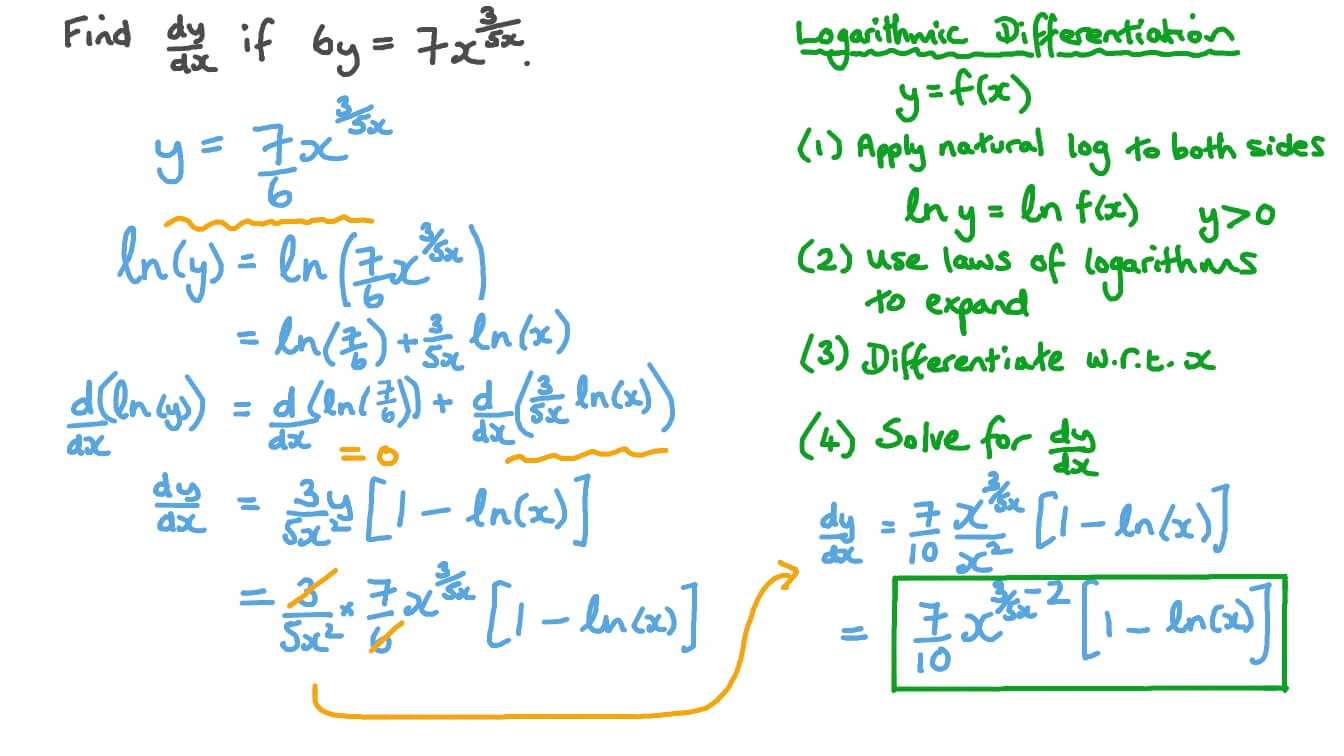 Find dy/dx if 6y = 7x^(3/5x).
y = 7/6 x^(3/5x)
ln(y) = ln(7/6 x^(3/5x))
= ln(7/6) + 3/5x ln(x)
d/dx(ln(y)) = d/dx(ln(7/6)) + d/dx(3/5x ln(x))
= 0
dy/dx = 3y/5x² [1 - ln(x)]
= 3/5x² × 7/6 x^(3/5x) [1 - ln(x)]
Logarithmic Differentiation
y = f(x)
(1) Apply natural log to both sides
ln y = ln f(x) y>0
(2) Use laws of logarithms
to expand
(3) Differentiate w.r.t. x
(4) Solve for dy/dx
dy/dx = 7/10 x^(3/5x)/x² [1 - ln(x)]
= 7/10 x^(3/5x - 2) [1 - ln(x)]